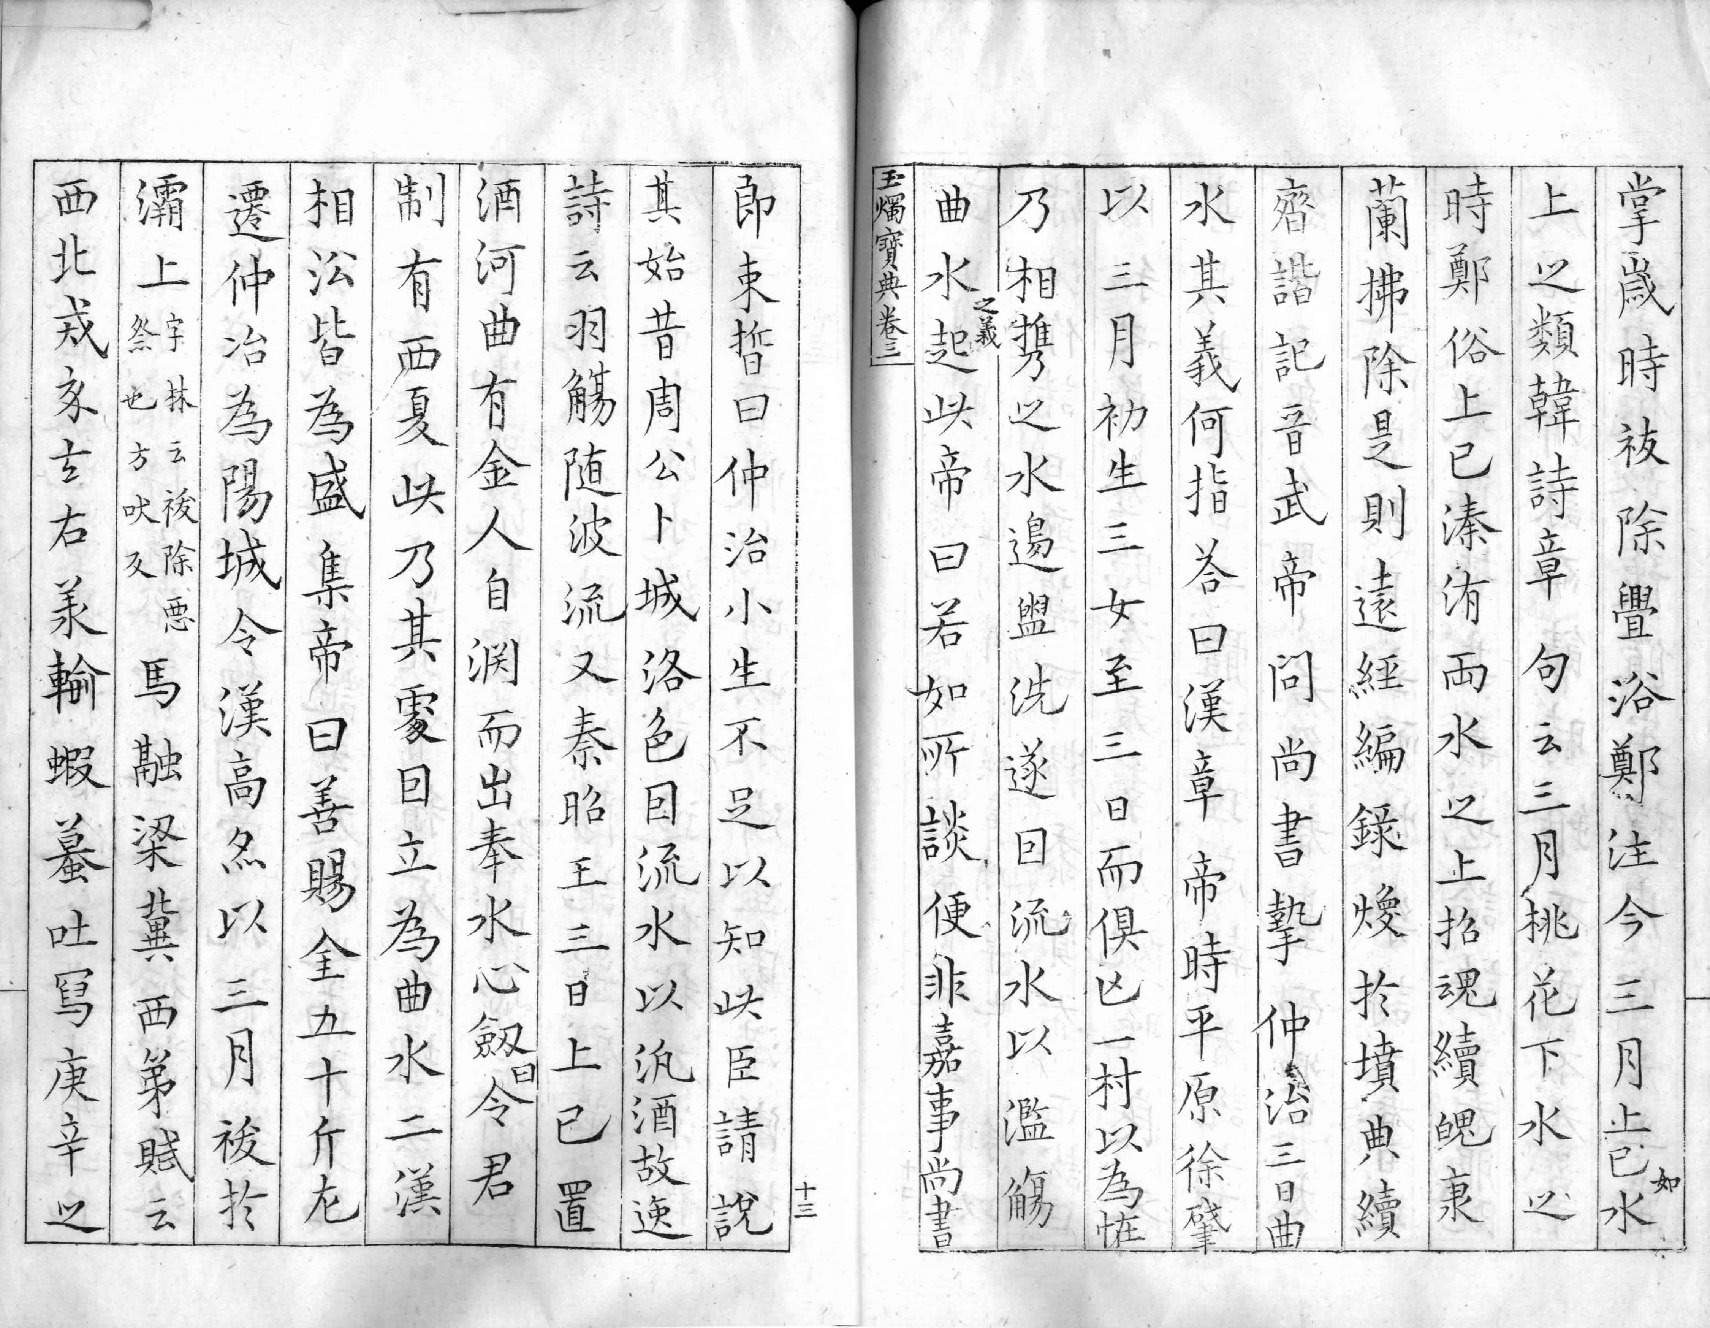 掌歲時祓除疊浴鄭注今三月上巳如水
上之類韓詩章句云三月桃花下水之
時鄭俗上巳溱洧兩水之上招魂續魄秉
蘭拂除是則遠經編錄煥於墳典續
齊諧記晉武帝問尚書摯仲治三日曲
水其義何指荅曰漢章帝時平原徐肇
以三月初生三女至三日而俱亡一村以為恠
乃相攜之水邊盥洗遂因流水以濫觴
曲水之義起此帝曰若如所談便非嘉事尚書
玉燭寶典卷三
郎束晢曰仲治小生不足以知此臣請說
其始昔周公卜城洛色因流水以汎酒故逸
詩云羽觴随波流又秦昭王三日上巳置
酒河曲有金人自渕而出奉水心劔曰令君
制有西夏此乃其䖏因立為曲水二漢
相㳂皆為盛集帝曰善賜金五十斤左
遷仲冶為陽城令漢高后以三月祓於
灞上字林云祓除惡祭也方吠反馬融梁冀西第賦云
西北戎亥玄右羕輸蝦蟇吐寫庚辛之
十三